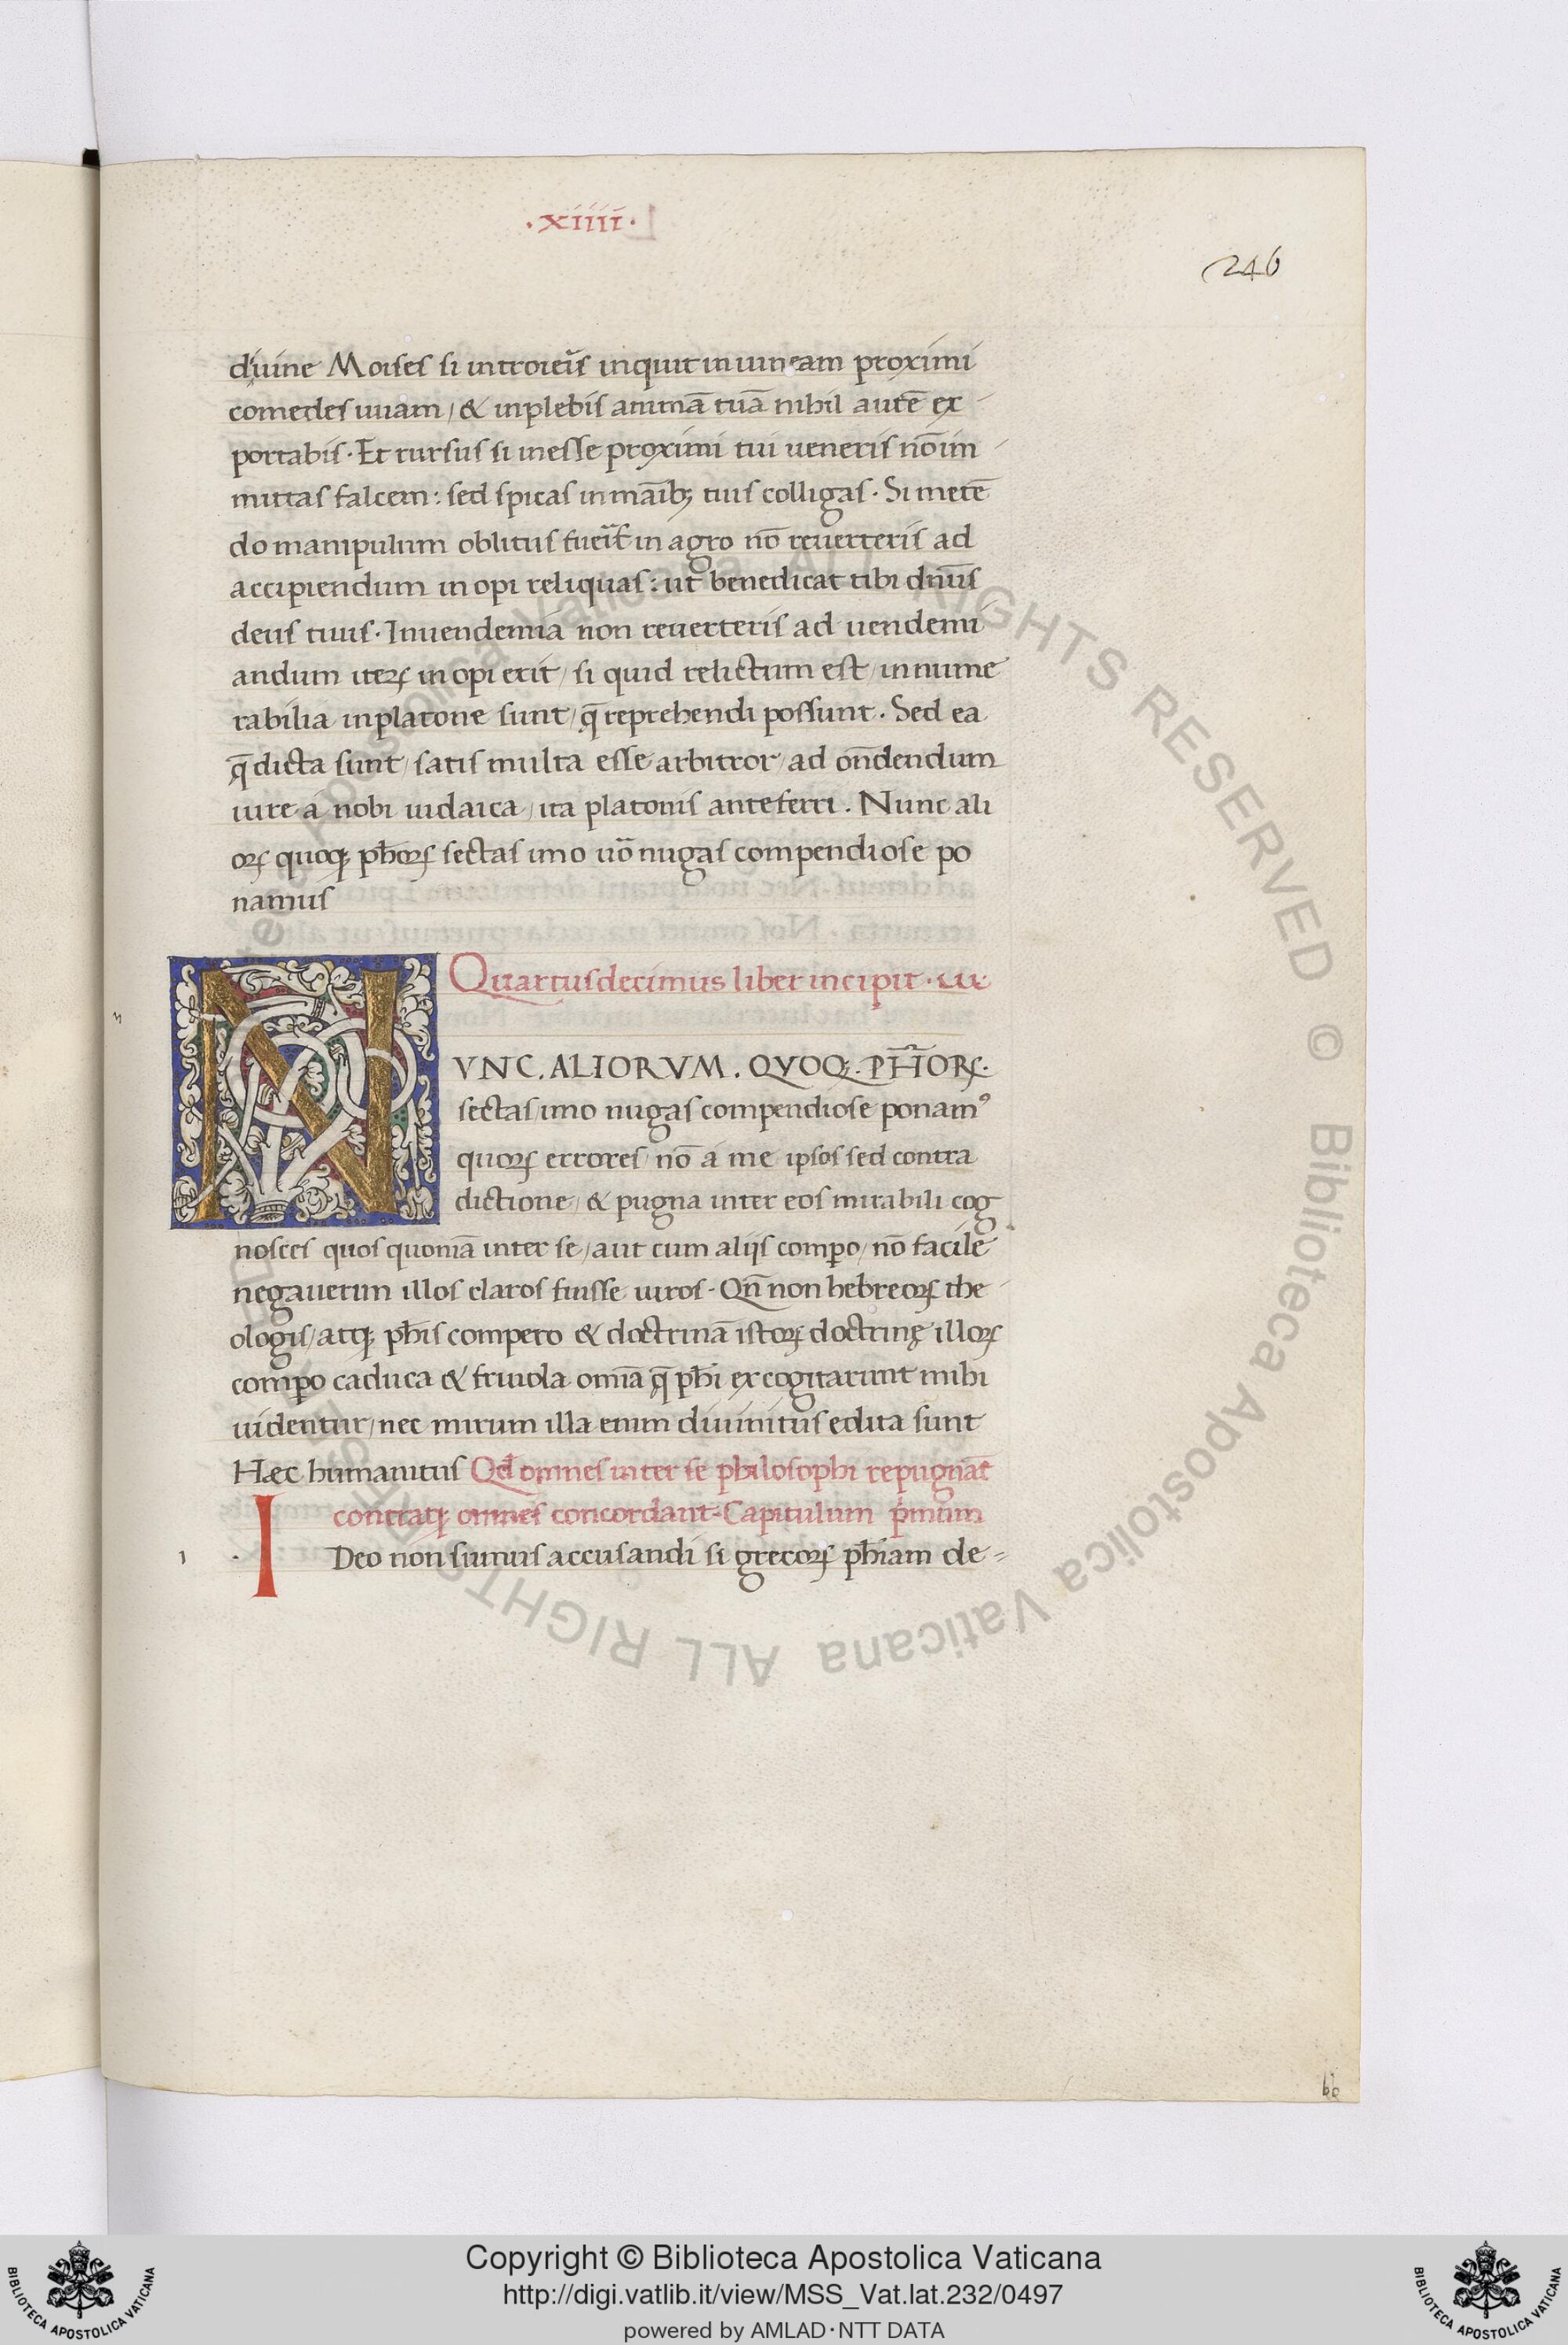 ·xiiii·
246
diuine Moises si introieris̃ inquit in uineam proximi
comedes uuam / & inplebis animā tuā nihil autē ex
portabis · Et rursus si inesse proximi tui ueneris nō im
mittas falcem : sed spicas in māibꝫ tuis colligas · Si metē
do manipulum oblitus fuer̃it in agro nō reuerteris ad
accipiendum in opi reliquas : ut benedicat tibi dn̄us
deus tuus · Inuendemia non reuerteris ad uendemi
andum iteꝝ in opi erit / si quid relictum est / in nume
rabilia in platone sunt / q̄ reprehendi possunt . Sed ea
q̄ dicta sunt / satis multa esse arbitror / ad on̄dendum
iure a nobi iudaica / ita platonis anteferri . Nunc ali
oꝝ quoqꝫ ph̄oꝝ sectas imo uō nugas compendiose po
namus
Quartusdecimus liber incipit ·
N
VNC . ALIORVM . QVOQꝫ . PH̄OꝜ .
sectas imo nugas compendiose ponamꝰ
quoꝝ errores / nō a me ipsos sed contra
dictione / & pugna inter eos mirabili cog
nosces quos quoniā inter se / aut cum aliis comꝑo / nō facile
negauerim illos claros fuisse uiros · Qn̄ non hebreoꝝ the
ologis / atqꝫ ph̄is compero & doctrinā istoꝝ doctrinę illoꝝ
comꝑo caduca & friuola omīa q̄ ph̄i excogitarunt mihi
uidentur / nec mirum illa enim diuinitus edita sunt
Hæc humanitus Qđ omnes inter se philosophi repugnāt
contraqꝫ omnes concordant · Capitulum pͥmum
I
Deo non sumus accusandi si grecoꝝ ph̄iam de=
bb
Copyright © Biblioteca Apostolica Vaticana
http://digi.vatlib.it/view/MSS_Vat.lat.232/0497
powered by AMLAD·NTT DATA
BIBLIOTECA APOSTOLICA VATICANA
BIBLIOTECA APOSTOLICA VATICANA
© Biblioteca Apostolica Vaticana ALL RIGHTS RESERVED